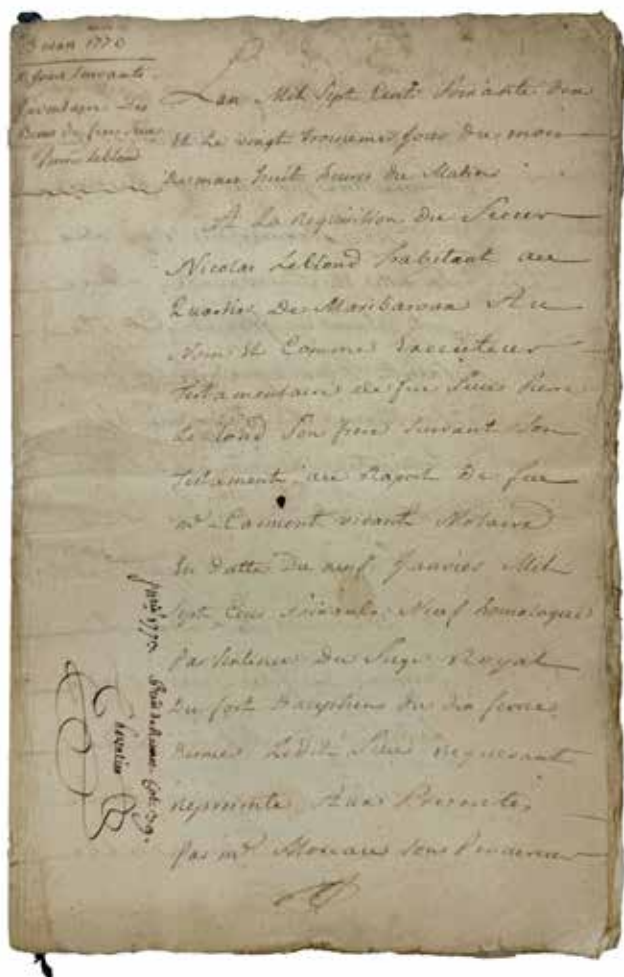 3 mars 1770
& jours suivants
Inventaire Des
Biens du feu Sieur
Pierre Leblond
Lan Mil Sept Cent Soixante dix
Et Le vingt troisieme Jour Du mois
De mars huit heures Du Matin
A La Requisition Du Sieur
Nicolas Leblond habitant au
Quartier De Maribaroux Au
Nom Et Comme Executeur
Testamentaire de feu Sieur Pierre
Le blond Son frere Suivant Son
Testament au Raport De feu
me Caimont vivant Notaire
En datte Du neuf Janvier Mil
Sept Cens Soixante Neuf homologué
Par Sentence Du Juge Royal
Du fort Dauphin du dix fevrier
Dernier Ledit Sieur Requerant
Represente Aux Presentes
Par me Moreau Son Procureur
1770